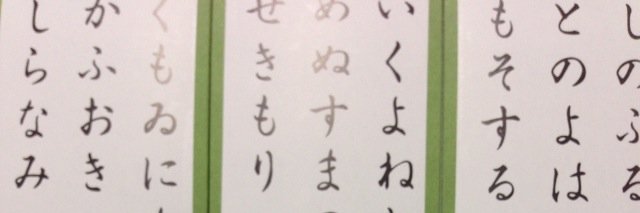 しのふる
とのよは
もそする
いくよね
めぬすま
せきもり
くもゐに
かふおき
しらなみ